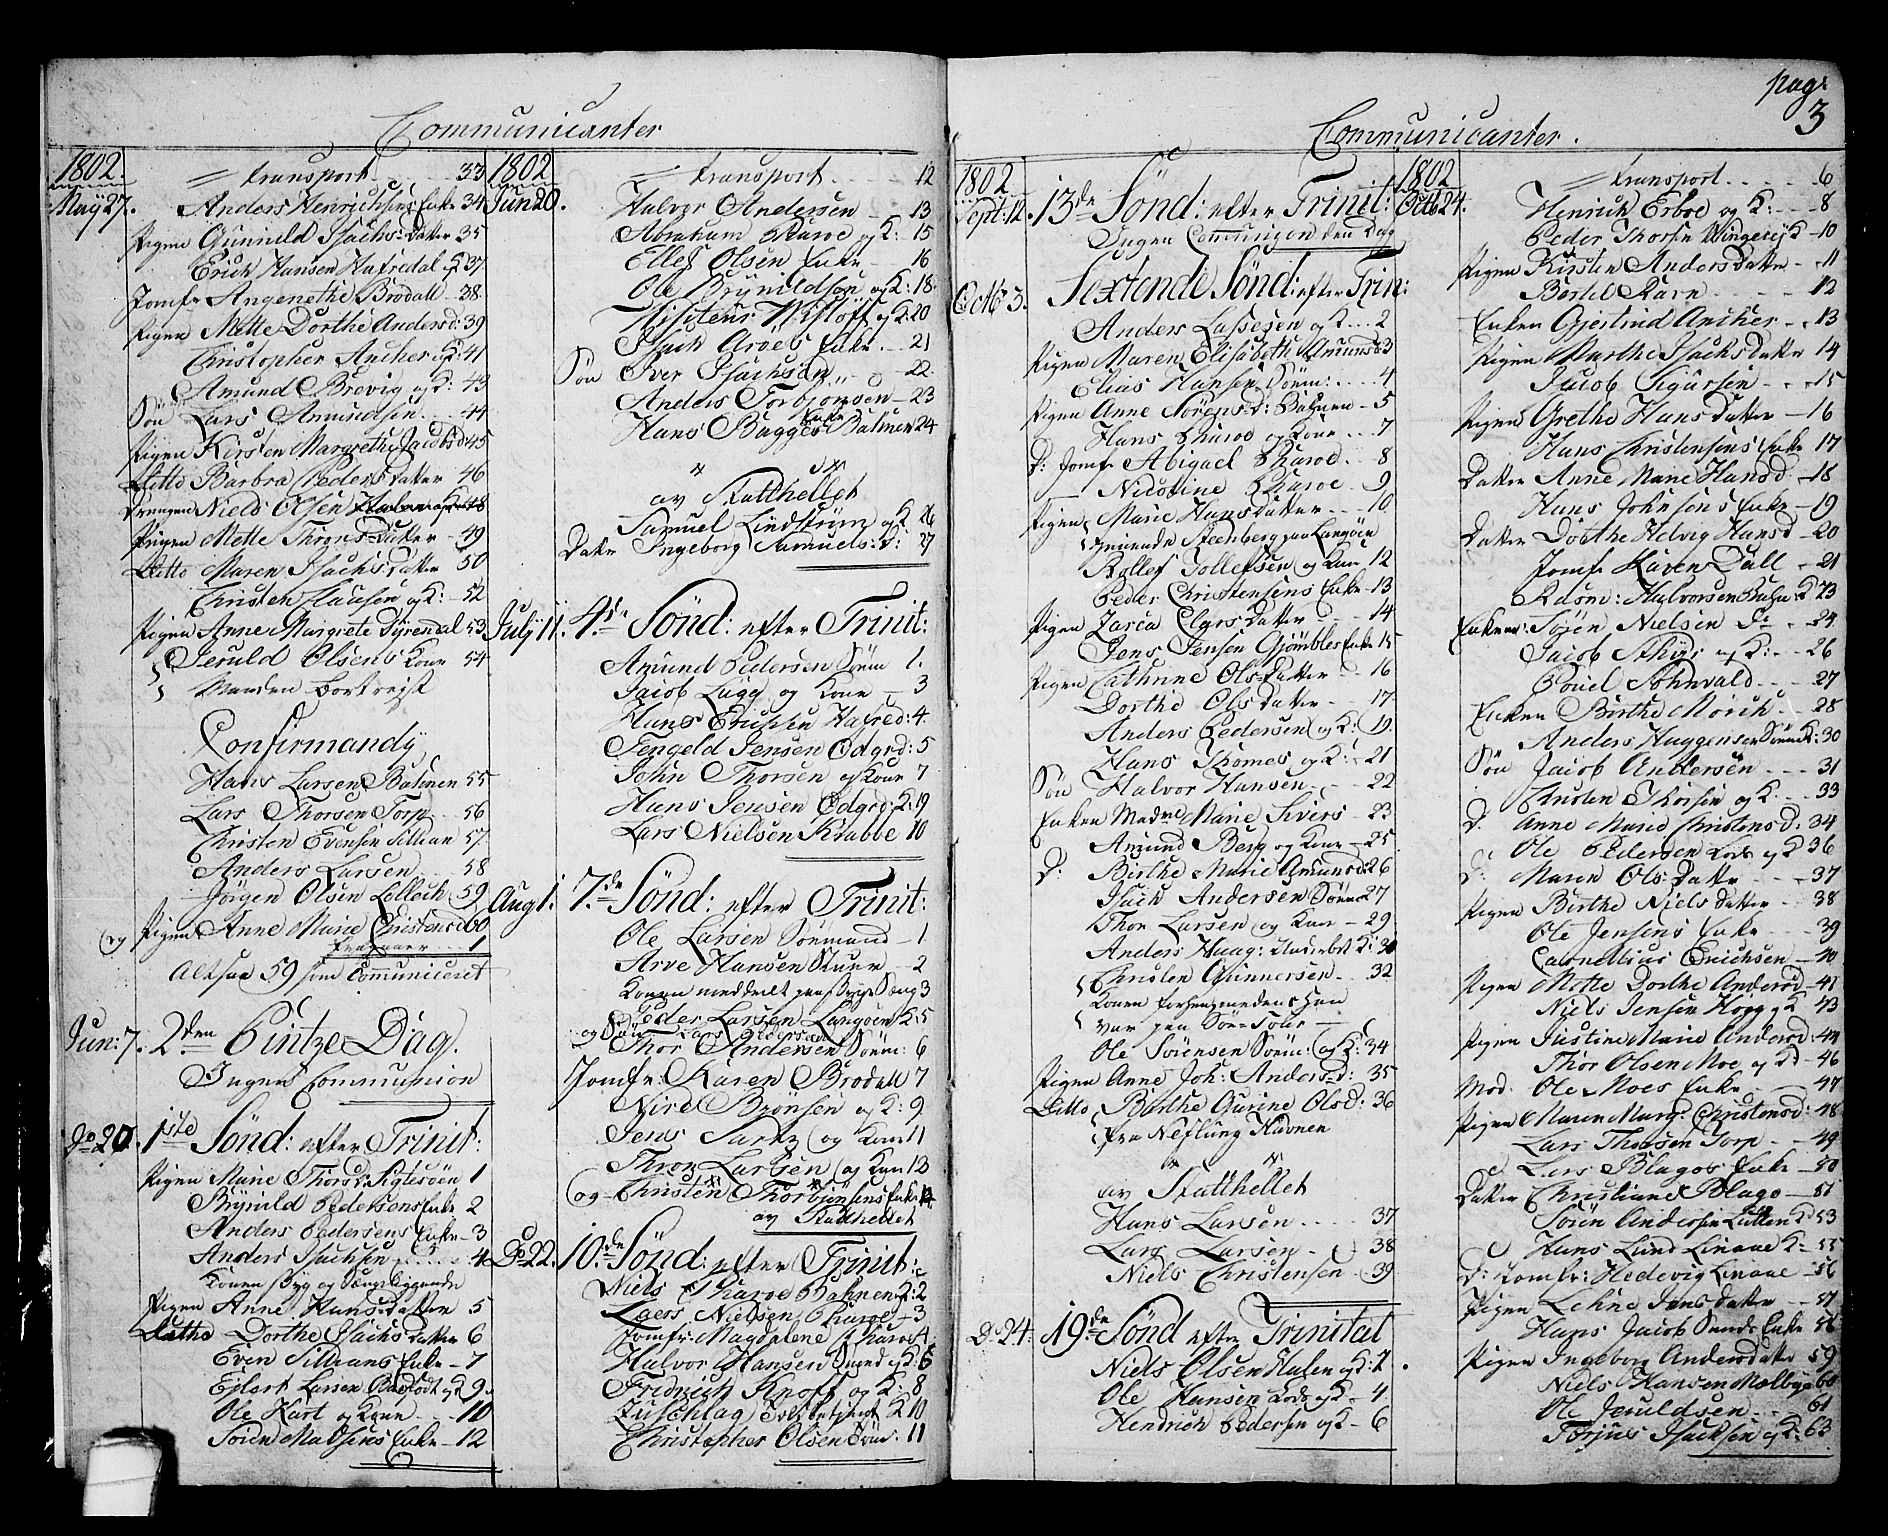 Communicanter
1802.
May 27.
transport 33
Anders Henrichsens Enke 34
Pigen Gunnild Isachs Datter 35
Erich Hansen Hafredal og K 37
Jomfr Angenethe Brodall 38
Pigen Mette Dorthe Andersd: 39
Christopher Ancher og K: 41
Amund Brevig og K: 43
Søn Lars Amundsen 44
Pigen Kirsten Margrethe Jacobsd 45
Ditto Barbra Peders datter 46
Drengen Niels Olsen 48
Pigen Mette Throns Datter 49
Ditto Maren Isachs datter 50
Christen Clausen og K: 52
Pigen Anne Margrete Dyrendal 53
Jeruld Olsens Kone 54
Manden bortreist
Confirmandy
Hans Larsen Bahnen 55
Lars Thorsen Torp 56
Christen Evensen Sillian 57
Anders Larsen 58
Jörgen Olsen 59
og Pigen Anne Marie Christensd 60
fragaaer 1
Altsaa 59 som Communiceret
Jun: 7. 2den Pintze Dag.
Ingen Communion
Do 20. 1ste Sönd: efter Trinit:
Pigen Marie Thorsd: 1
Brynild Pedersens Enke 2
Anders Pedersens Enke 3
Anders Isachsen 4
Konen syg og Sengeliggende
Pigen Anne Hans datter 5
Ditto Dorthe Isachs datter 6
Even Sillians Enke 7
Ejlert Larsen og K 9
Ole Hart og Kone 10
Sören Madsens Enke 12
1802
Jun 20.
transport 12
Halvor Andersen 13
Abraham Charoe og K: 15
Ellef Olsen Enke 16
Ole Brynildsen og K: 18
Visiteur Wisløff og K: 20
Isach Aroes Enke 21
Søn Iver Isachsen 22
Anders Torbjønsen 23
Hans Bagges Enke Bahnen 24
av Statthellet
Samuel Lindstrøm og K 26
Datr Ingeborg Samuels: d: 27
July 11. 4de Sönd: efter Trinit:
Amund Pedersen Sörm 1.
Jacob Lugg og Kone 3
Hans Erichsen Hafred: 4.
Tengeld Jensen Odgrd: 5
John Thorsen og Kone 7
Hans Jensen Odgrd: K: 9
Lars Nielsen Krabbe 10
Aug 1. 7de Sönd: efter Trinit:
Ole Larsen Sörmand 1.
Arve Hansen Stuer 2
Konen meddeelt paa Syge Seng 3
Peder Larsen Langöen K: 5
og Søn Lars Pedersen
Thor Andersen Sörm: 6
Jomfr: Karen Brodall 7
Nire Brönsen og K: 9.
Jens Sartz og Kone 11
Thron Larsen og Kone 13
og Christen Thorbjönsens Enke 14
av Statthellet
Do 22. 10de Sönd: efter Trinit:
Niels Charoe Bahnen K: 2
Laers Nielsen Charoe 3
Jomfr: Magdalene Charoe 4
Halvor Hansen Smed og K: 6
Fridrich Knoff og K: 8
Zuschlag Toldbetjent K 10
Christopher Olsen Sörm: 11
Communicanter.
pag: 3
1802
Sept: 12. 13de Sönd: efter Trinit:
Ingen Communion den Dag
Octb 3. Sextende Sönd: efter Trin:
Anders Lassesen og K 2
Pigen Maren Elisabeth Amunds 3
Elias Hansen Sörm: 4
Pigen Anne Sörens d: Bahnen 5
Hans Charoe og Kone 7
D: Jomfr Abigael Charoe 8
Nicoline Charoe 9
Pigen Marie Hansdatter 10
Steenberg paa Langöen
Rollef Tollefsen og Kone 12
Peder Christensens Enke 13
Pigen Zaria Elgrs Datter 14
Jens Jensen Gjömbles Enke 15
Pigen Cathrine Ols Datter 16
Dorthe Olsdatter 17
Anders Pedersen og K: 19
Hans Thomes og K: 21
Søn Halvor Hansen 22
Enken Madme Marie Sivers 23
Amund Berg og Kone 25
D: Birthe Marie Amunds: 26
Isach Andersen Sörm 27
Thor Larsen og Kone 29
Anders Haag: K: 30
Christen Gunnersen 32
Konen forhen medens han
var paa Söe-Tour
Ole Sörensen Sörm: og K: 34
Pigen Anne Joh: Anders d: 35
Ditto Birthe Gurine Olsd: 36
fra Neflung Havnen
av Statthellet
Hans Larsen 37
Lars Larsen 38
Niels Christensen 39
Do 24. 19de Sönd efter Trinitat
Niels Olsen Halen og K: 2.
Ole Hansen Lods og K 4.
Hendrich Pedersen og K 6
1802
Octb 24.
transport 6
Henrich Erboe og K: 8
Peder Thorsen Wingereji K 10
Pigen Kirsten Anders datter 11
Bertel Karn 12
Enken Gjertrud Ancher 13
Pigen Marthe Isachs datter 14
Jacob Sigursen 15
Pigen Grethe Hans datter 16
Hans Christensens Enke 17
Datter Anne Marie Hansd 18
Hans Johnsens Enke 19
Datter Dorthe Helvig Hansd 20
Jomfr Karen Dall 21
Adsm: Halvorsen Bahn: K 23
Enken: Sören Nielsen D: 24
Jacob Schyr og K: 26
Povel Sohnvald 27
Enken Birthe Morih 28
Anders Huggensen Sörm K: 30
Søn Jacob Andersen 31
Christen Thorsen og K: 33
D. Anne Marie Christensd: 34
Ole Pedersen Lods og K 36
D: Maren Ols Datter 37
Pigen Birthe Niels datter 38
Ole Jensens Enke 39
Carnellius Erichsen 40
Pigen Mette Dorthe Andersd 41
Niels Jensen Hogg og K 43
Pigen Justine Marie Andersd 44
Thor Olsen Moe og K 46
Mod. Ole Moes Enke 47
Pigen Maren Marg: Christensd: 48
Lars Thorsen Torp 49
Lars Blagos Enke 50
Datter Christiane Blago 51
Sören Andersen Lutten K: 53
Hans Lund Linaae K: 55
D: Jomfr: Hedevig Linaae 56
Pigen Lehne Jens datter 57
Hans Jacob Sands Enke 58
Pigen Ingeborg Andersdatter 59
Niels Hansen Melbye 60
Ole Jeruldsen 61
Torjus Isachsen og K: 63